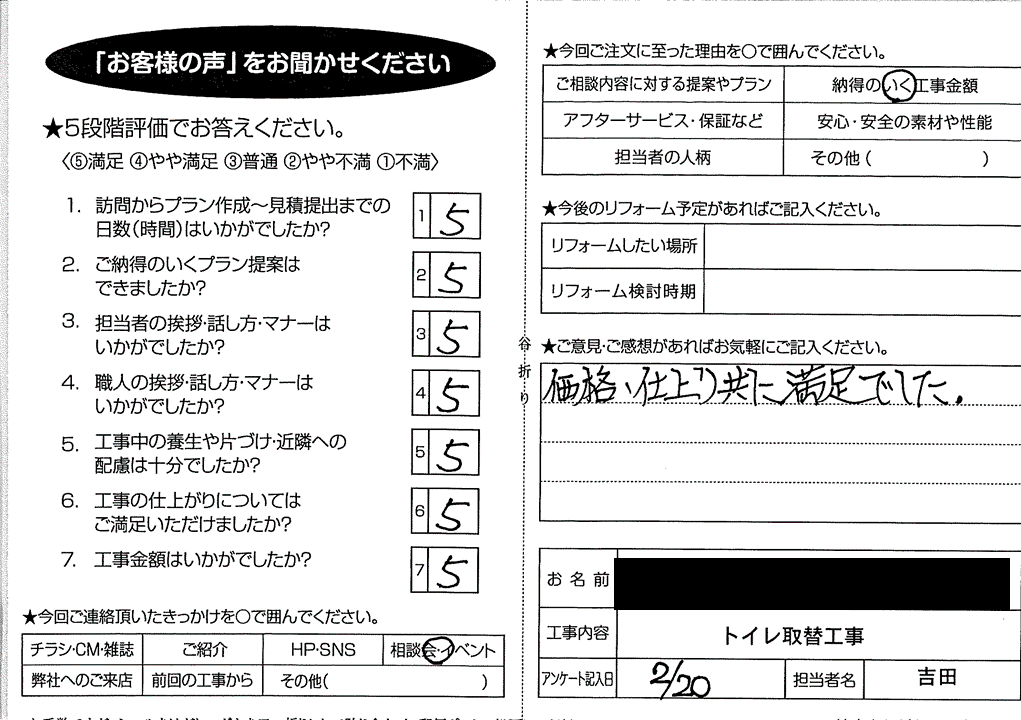 「お客様の声」をお聞かせください
★5段階評価でお答えください。
〈⑤満足 ④やや満足 ③普通 ②やや不満 ①不満〉
1. 訪問からプラン作成～見積提出までの
日数(時間)はいかがでしたか?
1 5
2. ご納得のいくプラン提案は
できましたか?
2 5
3. 担当者の挨拶・話し方・マナーは
いかがでしたか?
3 5
4. 職人の挨拶・話し方・マナーは
いかがでしたか?
4 5
5. 工事中の養生や片づけ・近隣への
配慮は十分でしたか?
5 5
6. 工事の仕上がりについては
ご満足いただけましたか?
6 5
7. 工事金額はいかがでしたか?
7 5
★今回ご連絡頂いたきっかけを○で囲んでください。
チラシ・CM・雑誌 ご紹介 HP・SNS 相談会・イベント
弊社へのご来店 前回の工事から その他( )
谷折り
★今回ご注文に至った理由を○で囲んでください。
ご相談内容に対する提案やプラン 納得のいく工事金額
アフターサービス・保証など 安心・安全の素材や性能
担当者の人柄 その他( )
★今後のリフォーム予定があればご記入ください。
リフォームしたい場所
リフォーム検討時期
★ご意見・ご感想があればお気軽にご記入ください。
価格、仕上り共に満足でした。
お名前
工事内容 トイレ取替工事
アンケート記入日 2/20 担当者名 吉田